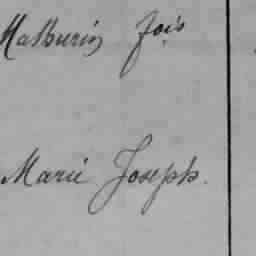 Mathurin fois
Marie Joseph.